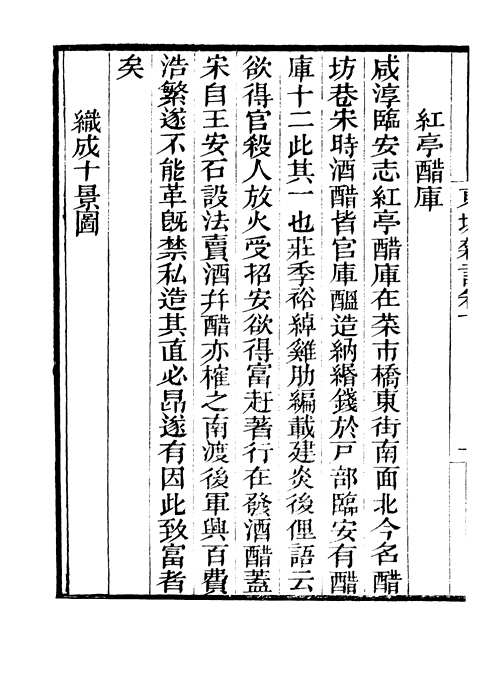 紅亭醋庫
咸淳臨安志紅亭醋庫在菜市橋東街南面北今名醋
坊巷宋時酒醋皆官庫醞造納緡錢於戸部臨安有醋
庫十二此其一也莊季裕綽雞肋編載建炎後俚語云
欲得官殺人放火受招安欲得富赶著行在發酒醋蓋
宋自王安石設法賣酒幷醋亦榷之南渡後軍興百費
浩繁遂不能革旣禁私造其直必昂遂有因此致富者
矣
織成十景圖